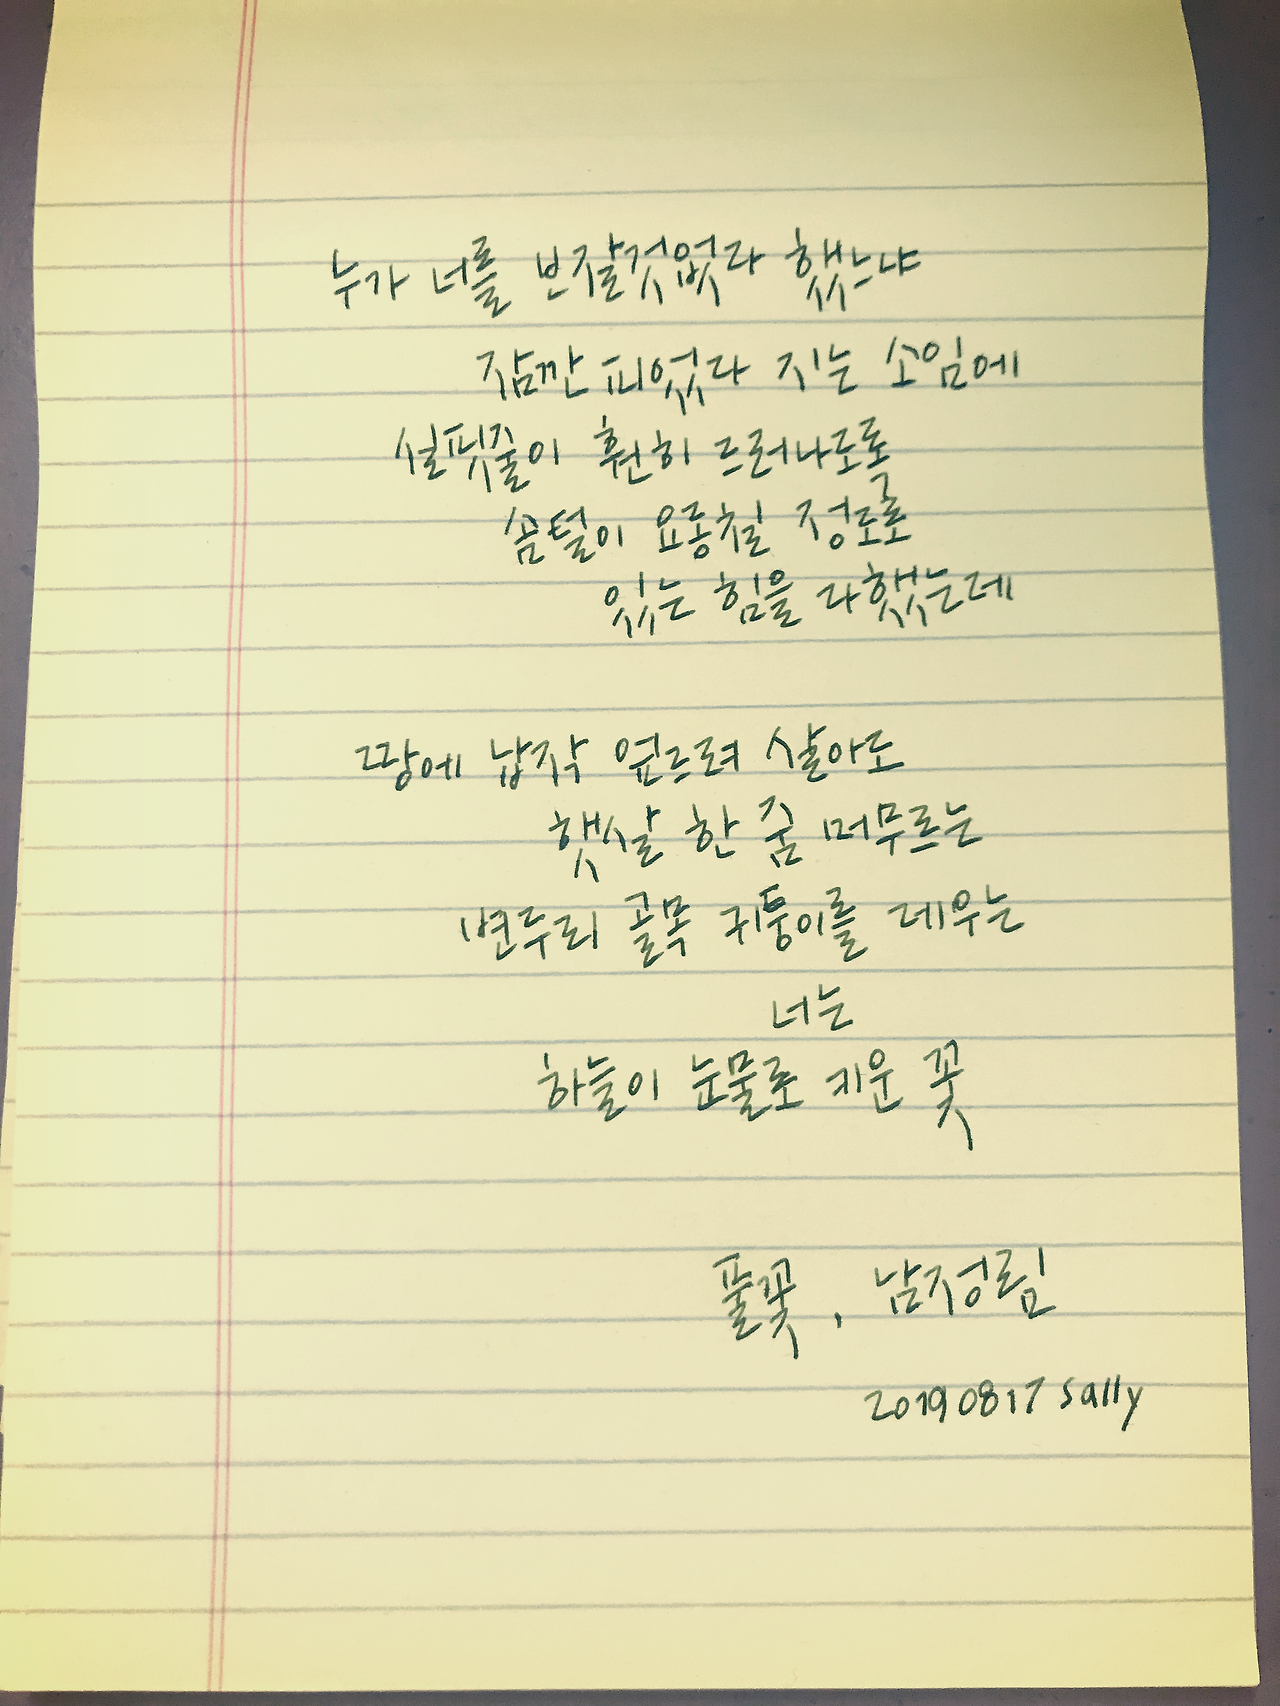 누가 너를 보잘것없다 했느냐
잠깐 피었다 지는 소임에
실핏줄이 훤히 드러나도록
솜털이 요동칠 정도로
있는 힘을 다했는데
땅에 납작 엎드려 살아도
햇살 한 줌 머무르는
변두리 골목 귀퉁이를 데우는
너는
하늘이 눈물로 키운 꽃
풀꽃, 남정림
20190817 sally